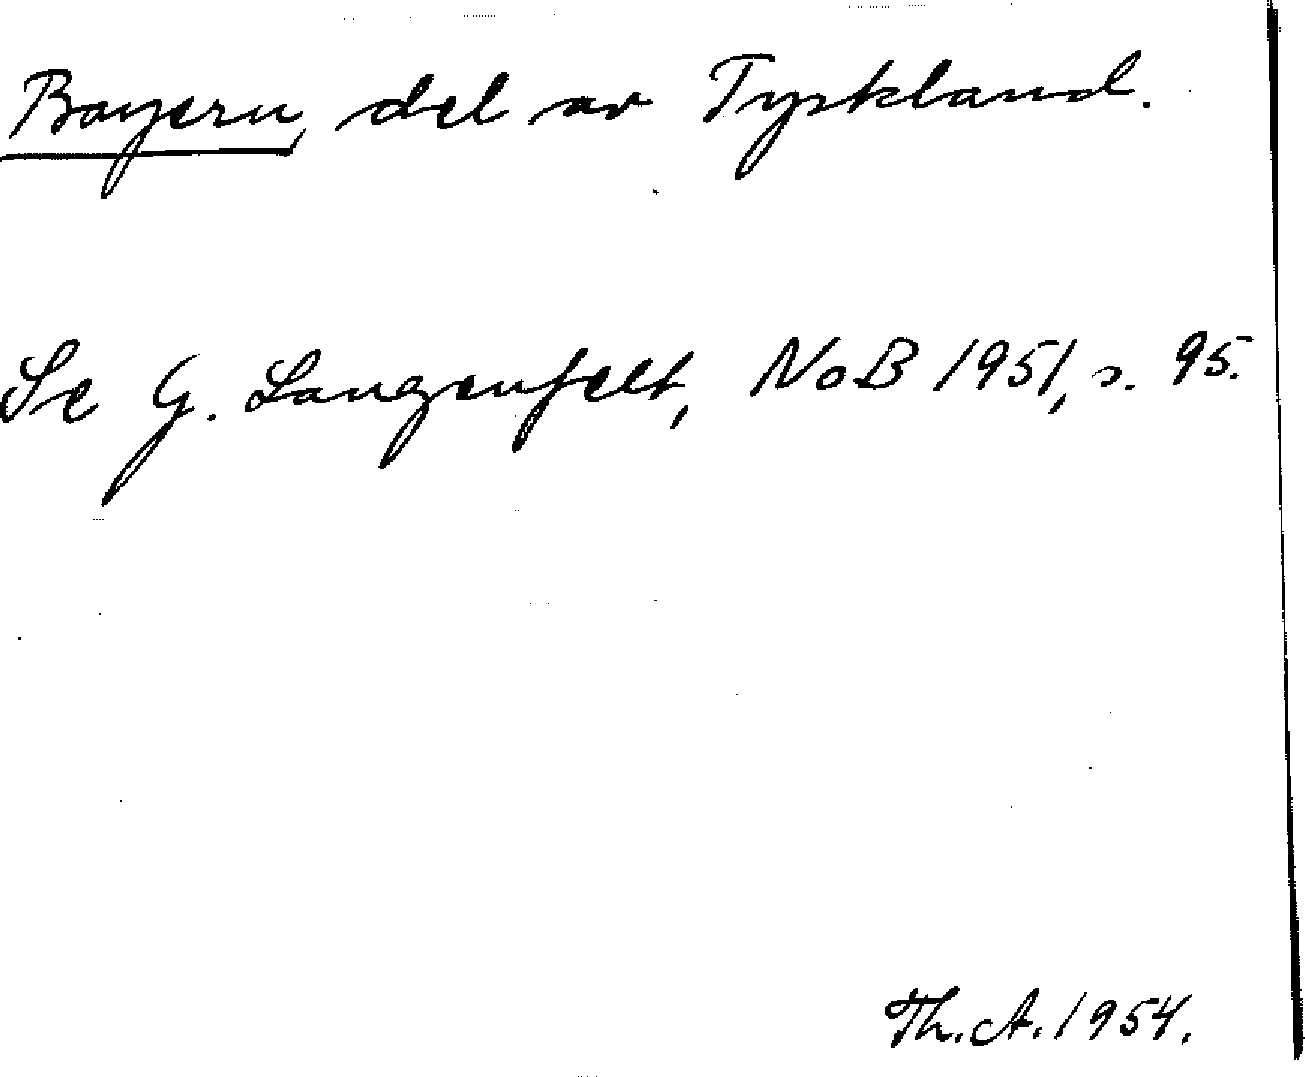 Bayern, del av Tyskland.
Se G. Langenfelt, NoB 1951, s. 95.
Th. A. 1954.